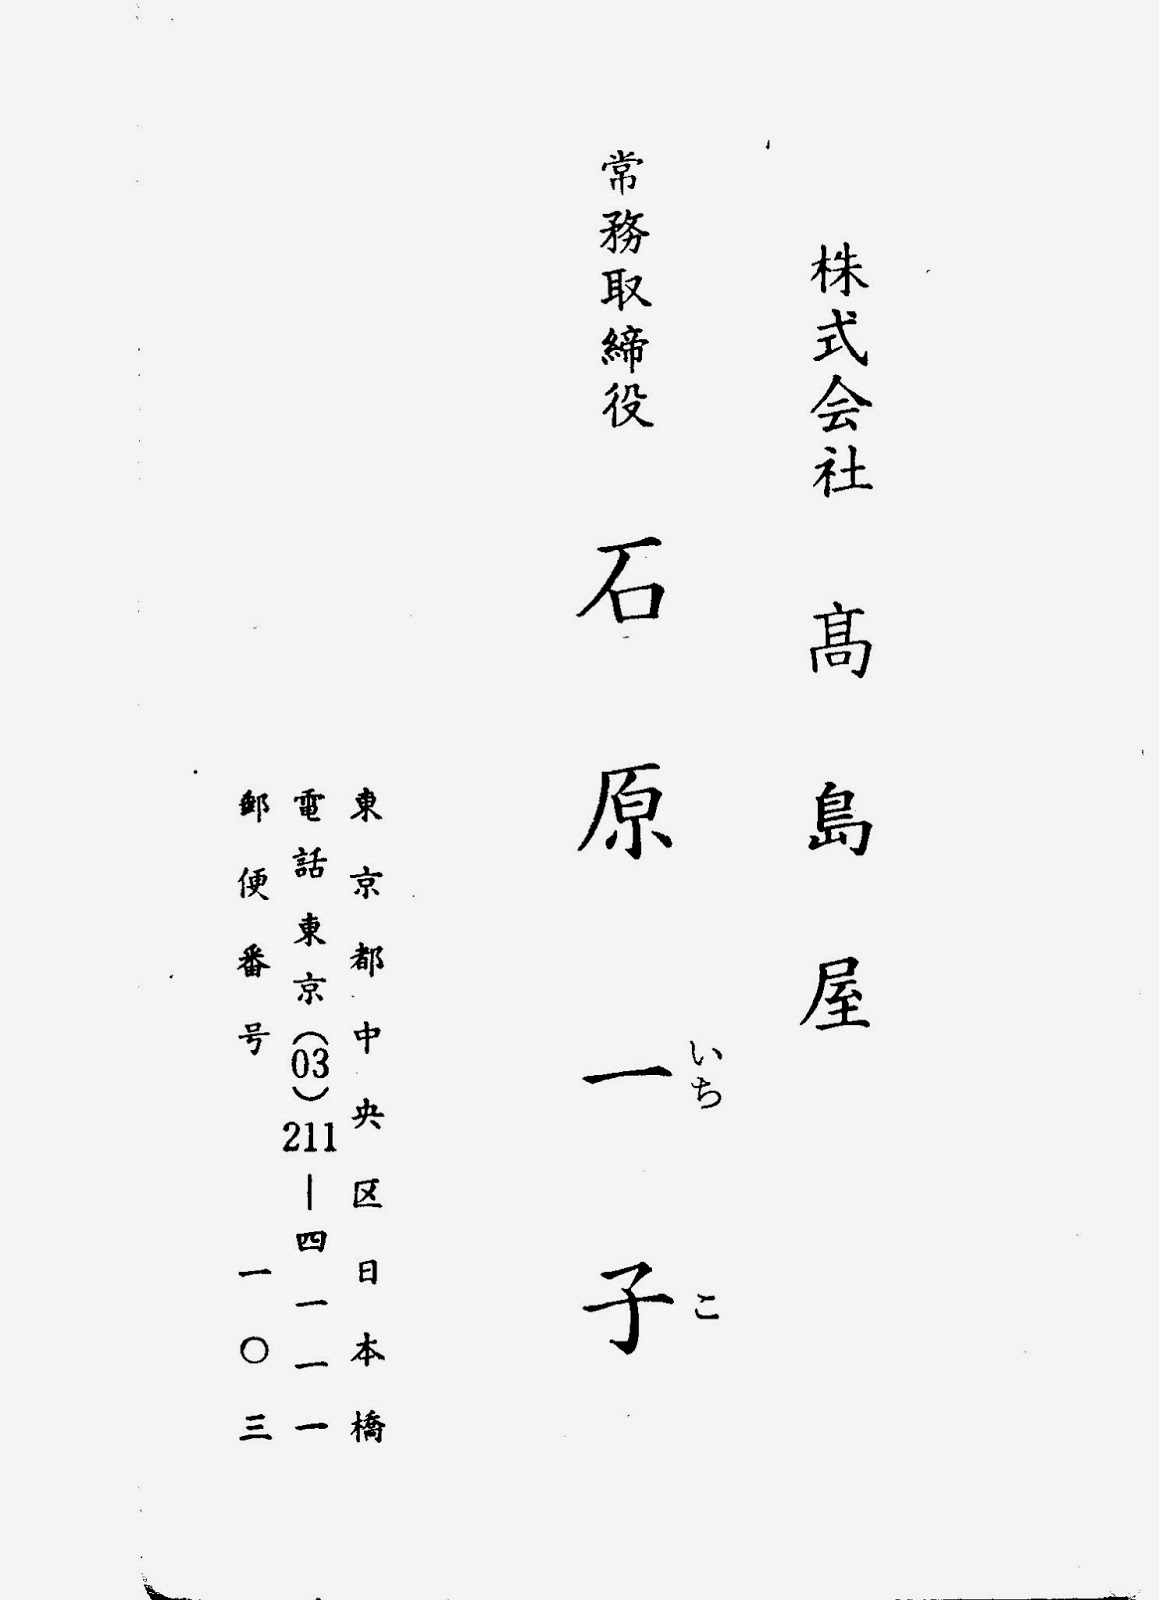 株式会社 髙島屋
常務取締役 石原一子
いちこ
東京都中央区日本橋
電話東京(03)211―四一一一
郵便番号 一〇三